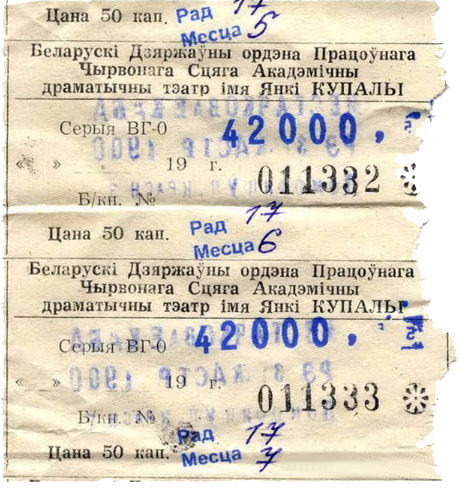 Цана 50 кап. Рад 17
Месца 5
Беларускі Дзяржаўны ордэна Працоўнага
Чырвонага Сцяга Акадэмічны
драматычны тэатр імя Янкі КУПАЛЫ
Серыя ВГ-0 42000,
« » 19 г. 011332
Б/кн. №
Цана 50 кап. Рад 17
Месца 6
Беларускі Дзяржаўны ордэна Працоўнага
Чырвонага Сцяга Акадэмічны
драматычны тэатр імя Янкі КУПАЛЫ
Серыя ВГ-0 42000,
« » 19 г. 011333
Б/кн. №
Цана 50 кап. Рад 17
Месца 7